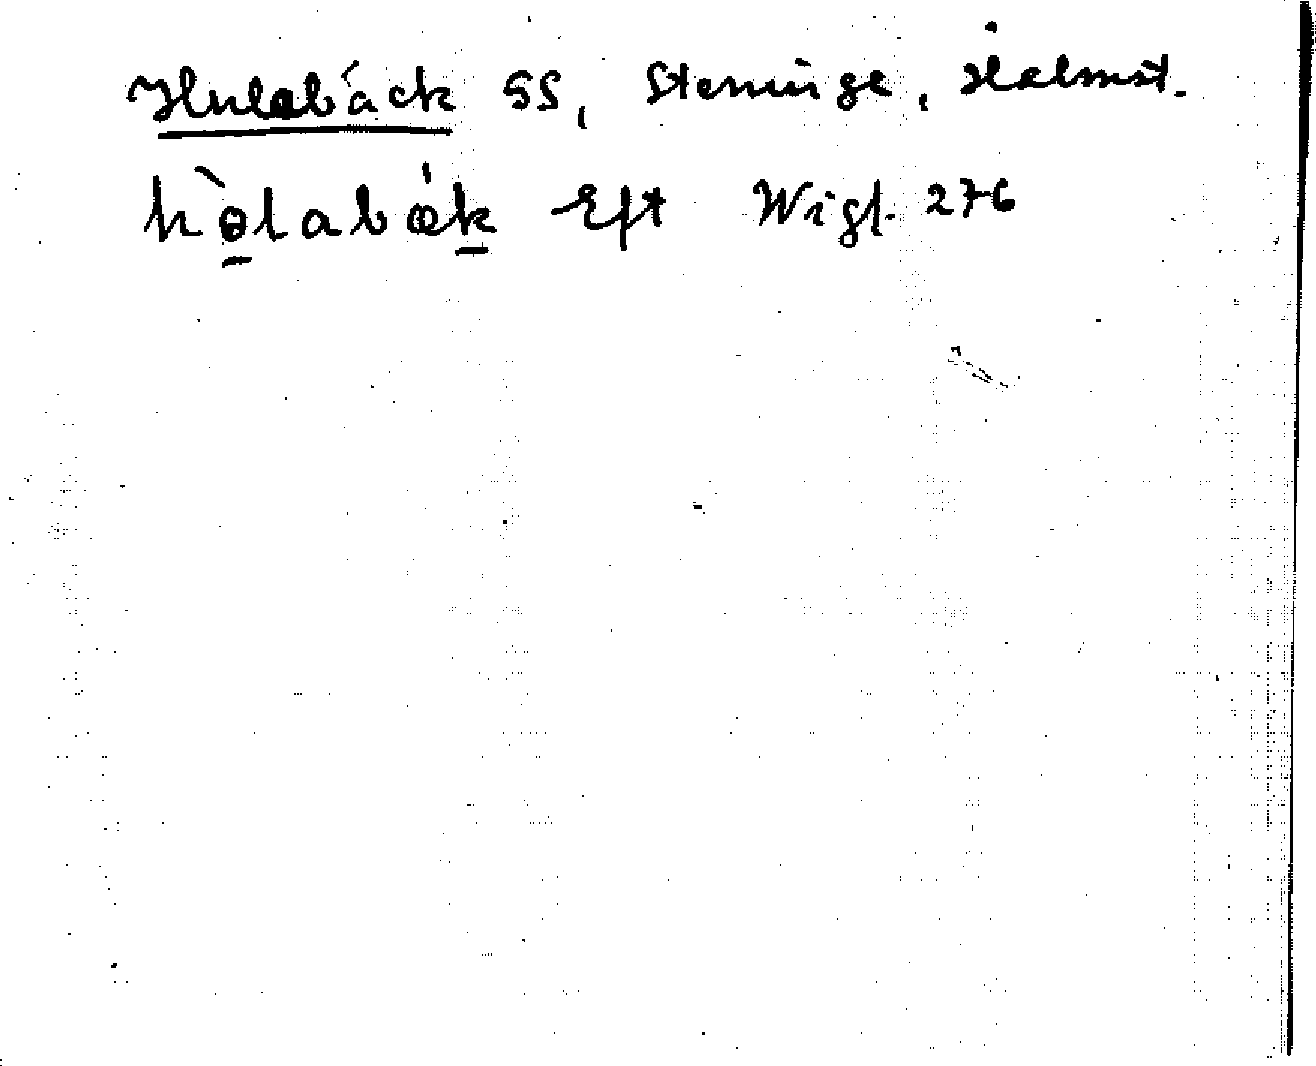 Hulabäck SS, Steninge, Halmst.
hòlabǽk Eft Wigf. 276